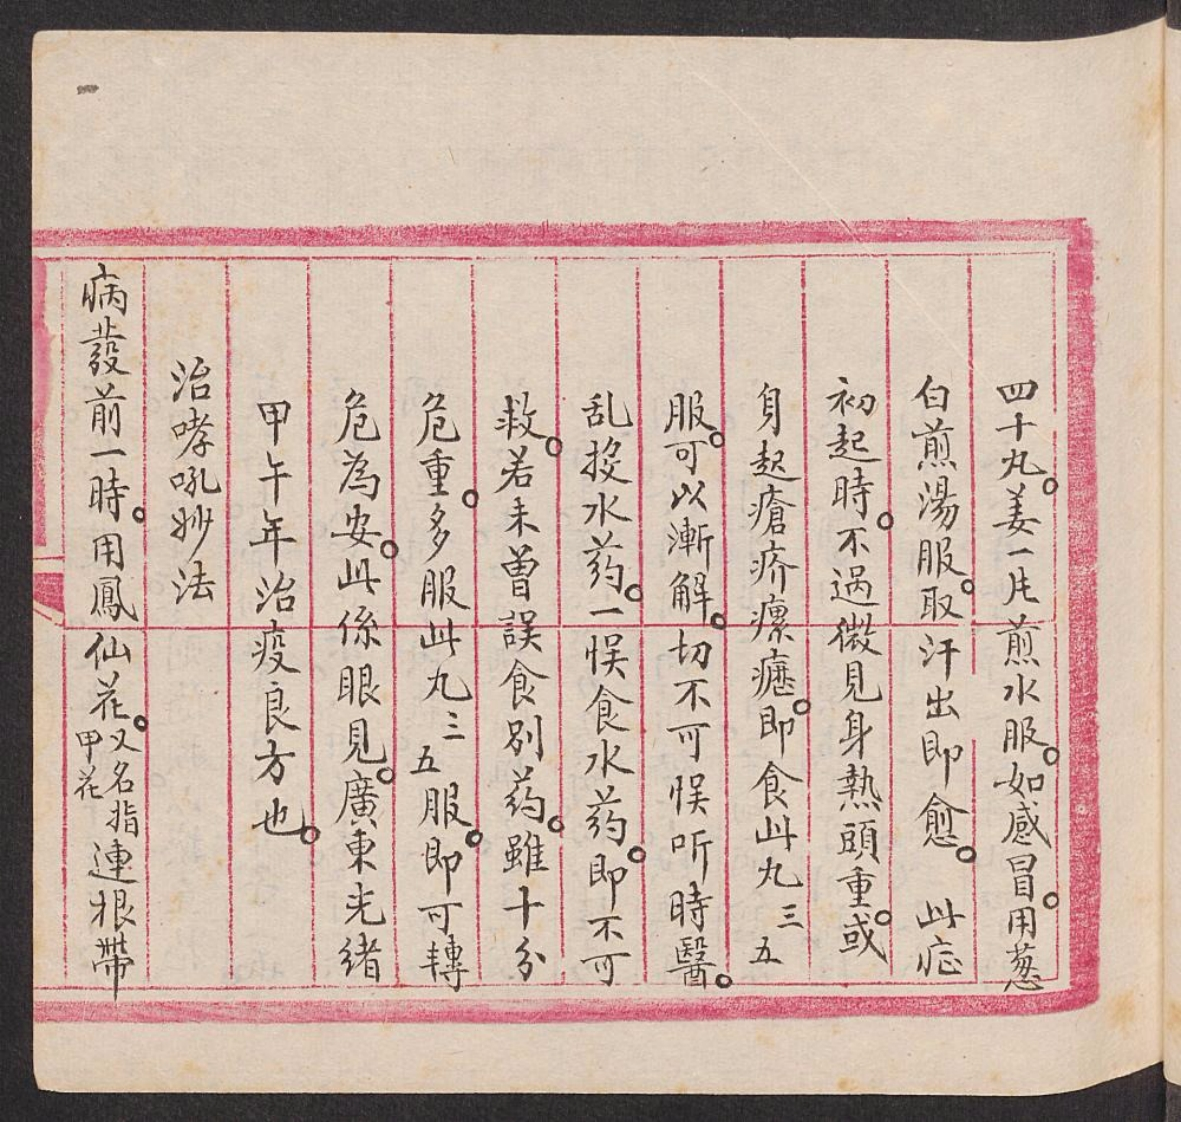 四十丸。姜一片煎水服。如感冒。用葱
白煎湯服。取汗出即愈。此症
初起時。不過微見身熱頭重。或
身起瘡疥瘰癧。即食此丸三五
服。可以漸解。切不可悞听時醫。
乱投水药。一悞食水药。即不可
救。若未曽誤食別药。雖十分
危重。多服此丸三五服。即可轉
危為安。此係眼見。廣東光緒
甲午年治疫良方也。
治哮吼妙法
病發前一時。用鳳仙花。又名指甲花連根帶